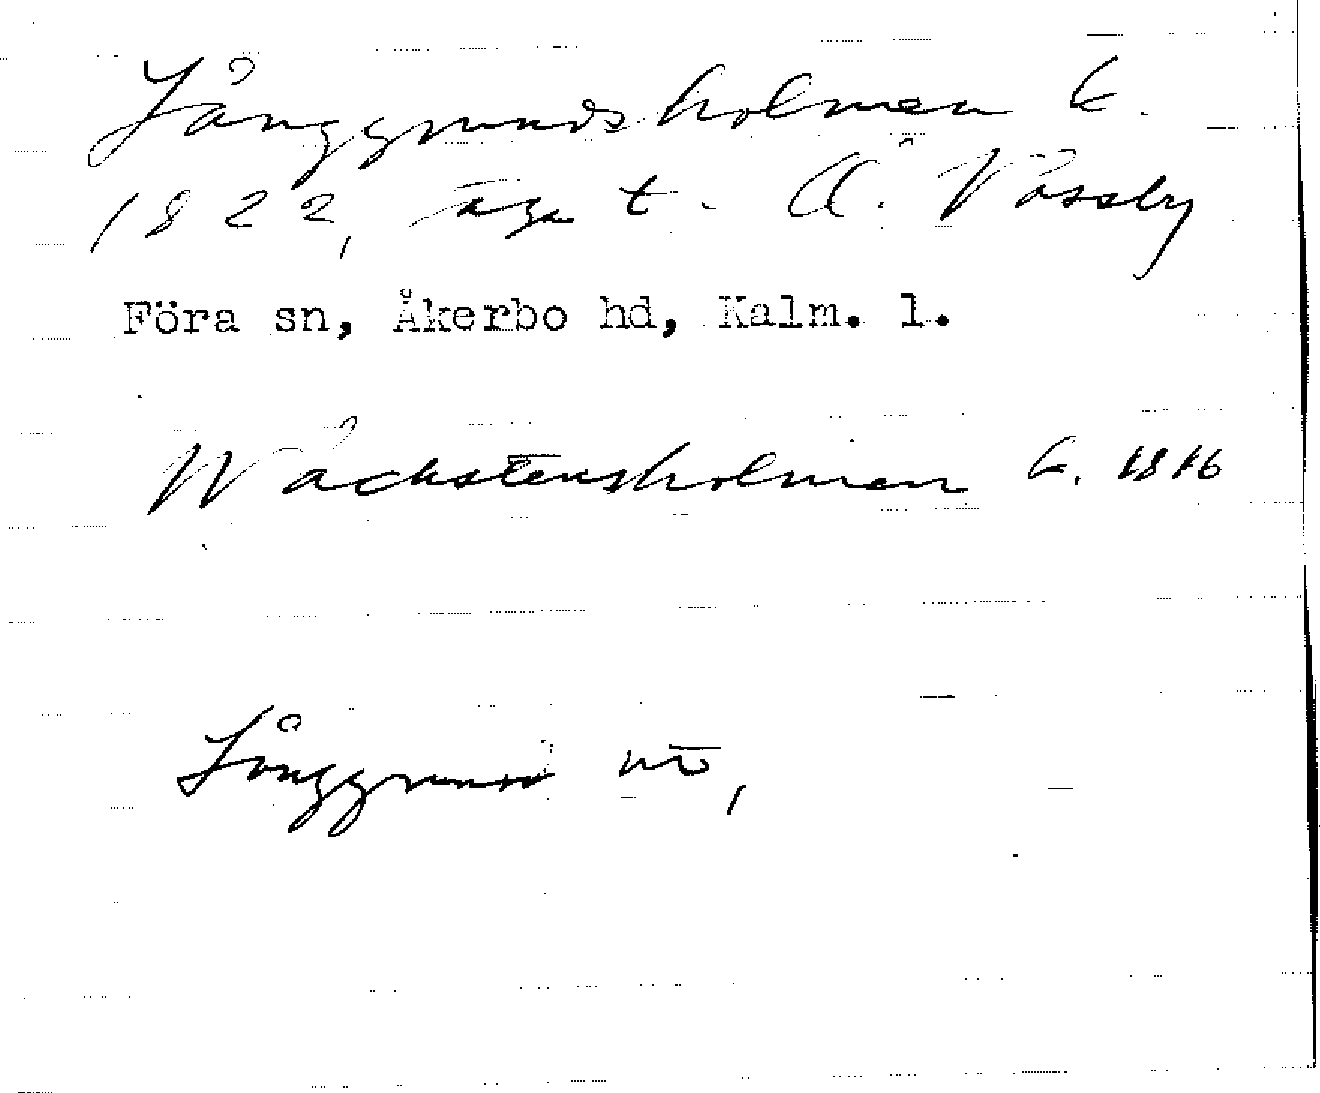 Långgrundsholmen L.
1822, äga t. Ö. Vässby
Föra sn, Åkerbo hd, Kalm. l.
Wåckstensholmen L. 1816
Långgrund